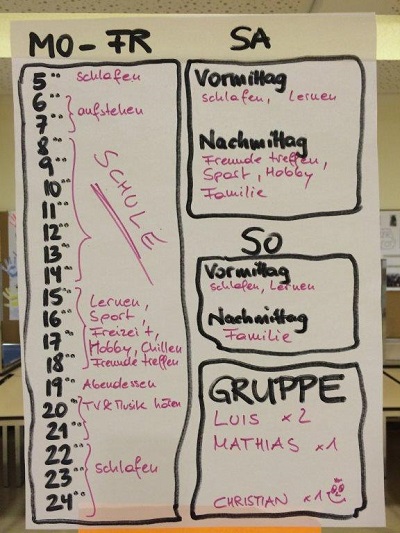 MO-FR
5⁰⁰ schlafen
6⁰⁰
aufstehen
7⁰⁰
8⁰⁰
9⁰⁰
10⁰⁰
11⁰⁰
SCHULE
12⁰⁰
13⁰⁰
14⁰⁰
15⁰⁰ Lernen,
16⁰⁰ Sport,
17⁰⁰ Freizeit,
Hobby, Chillen
18⁰⁰ Freunde treffen
19⁰⁰ Abendessen
20⁰⁰ TV & Musik hören
21⁰⁰
22⁰⁰
23⁰⁰ schlafen
24⁰⁰
SA
Vormittag
schlafen, Lernen
Nachmittag
Freunde treffen,
Sport, Hobby
Familie
SO
Vormittag
schlafen, Lernen
Nachmittag
Familie
GRUPPE
LUIS x2
MATHIAS x1
CHRISTIAN x1